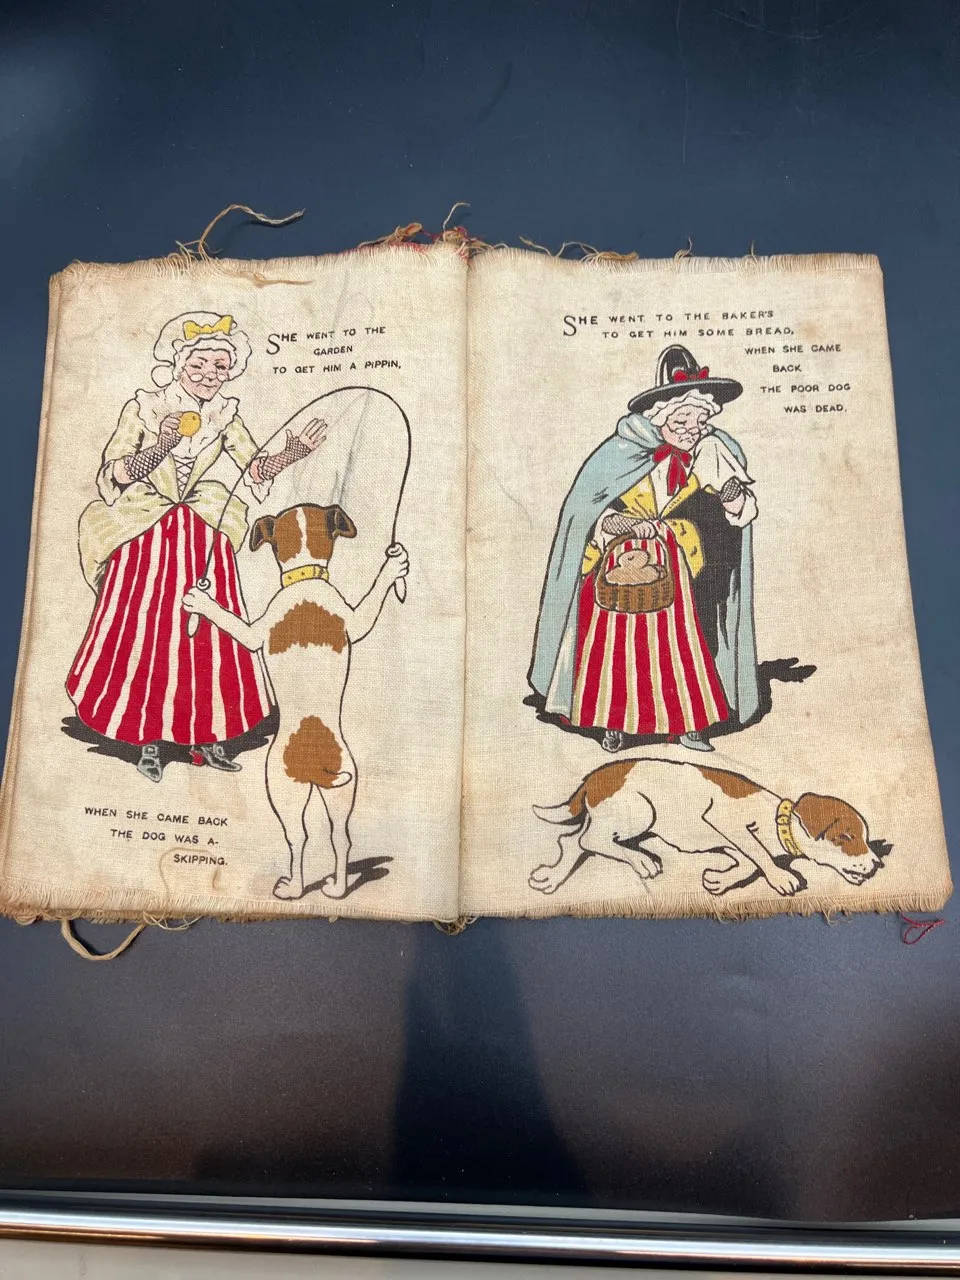 SHE WENT TO THE
GARDEN
TO GET HIM A PIPPIN,
WHEN SHE CAME BACK
THE DOG WAS A-
SKIPPING.
SHE WENT TO THE BAKER'S
TO GET HIM SOME BREAD,
WHEN SHE CAME
BACK
THE POOR DOG
WAS DEAD.